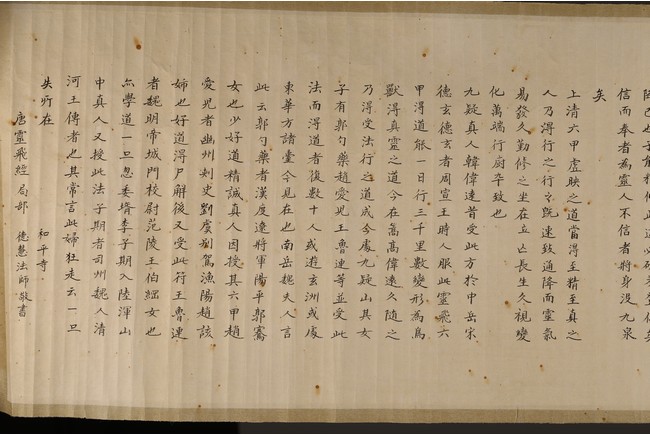 信而奉者為靈人不信者將身沒九泉
矣
上清六甲虛映之道當得至精至真之
人乃得行之行之既速致通降而靈氣
易發久勤修之坐在立亡長生久視變
化萬端行廚卒致也
九疑真人韓偉遠昔受此方於中岳宋
德玄德玄者周宣王時人服此靈飛六
甲得道能一日行三千里數變形為鳥
獸得真靈之道今在嵩高偉遠久隨之
乃得受法行之道成今處九疑山其女
子有郭勺藥趙愛兒王魯連等並受此
法而得道者復數十人或遊玄洲或處
東華方諸臺今見在也南岳魏夫人言
此云郭勺藥者漢度遼將軍陽平郭騫
女也少好道精誠真人因授其六甲趙
愛兒者幽州刺史劉虞別駕漁陽趙該
姊也好道得尸解後又受此符王魯連
者魏明帝城門校尉范陵王伯綱女也
亦學道一旦忽委壻李子期入陸渾山
中真人又授此法子期者司州魏人清
河王傳者也其常言此婦狂走云一旦
失所在
和平寺
唐靈飛經局部 德慧法師敬書